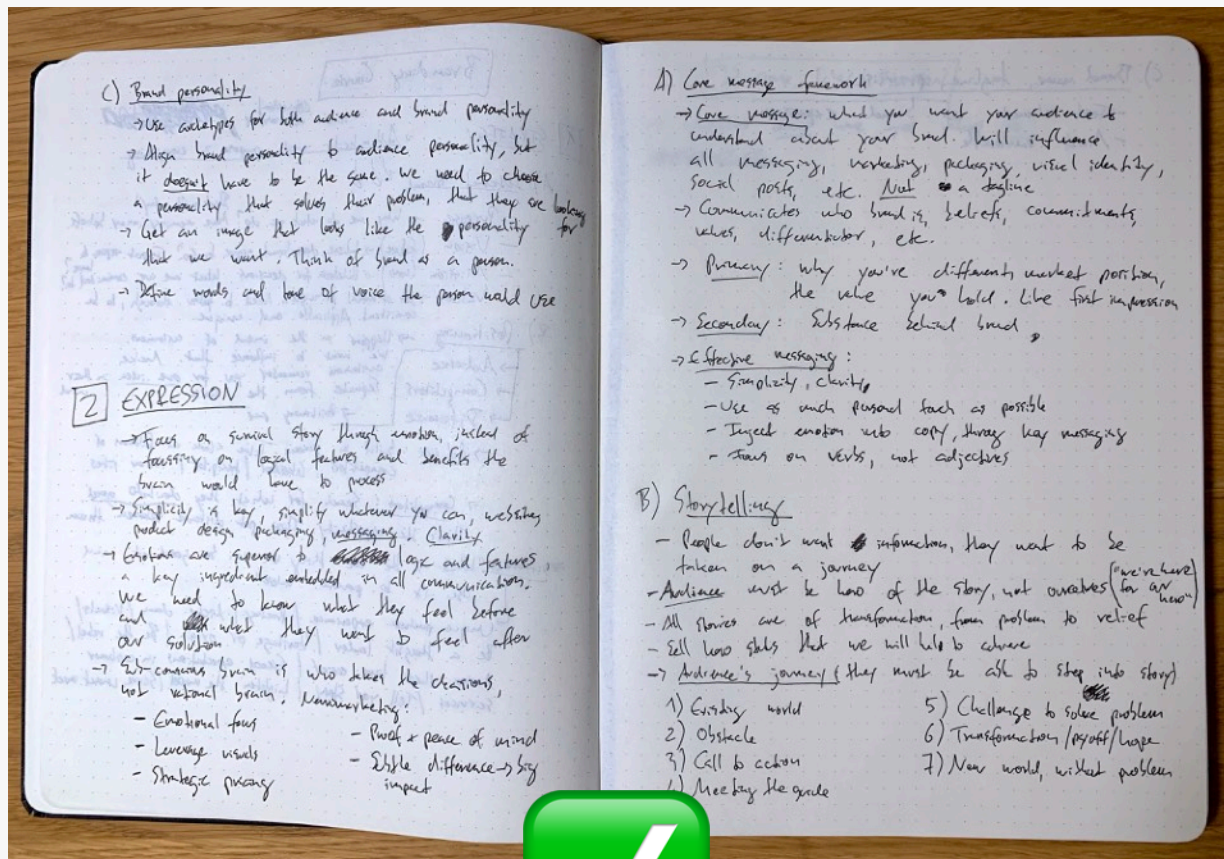 C) Brand personality
→ Use archetypes for both audience and brand personality
→ Align brand personality to audience personality, but
it doesn't have to be the same. We need to choose
a personality that solves their problem, that they are looking
for
→ Get an image that looks like the personality
that we want. Think of brand as a person.
→ Define words and tone of voice the person would use
2 EXPRESSION
→ Focus on survival story through emotion, instead of
focussing on logical features and benefits the
brain would have to process
→ Simplicity is key, simplify whatever you can, websites,
product design, packaging, messaging. Clarity
→ Emotions are superior to logic and features,
a key ingredient embedded in all communication.
We need to know what they feel before
and what they want to feel after
our solution
→ Sub-conscious brain is who takes the decisions,
not rational brain. Neuromarketing:
- Emotional focus
- Leverage visuals
- Strategic pricing
- Proof + peace of mind
- Subtle difference → big
impact
A) Core message framework
→ Core message: what you want your audience to
understand about your brand. Will influence
all messaging, marketing, packaging, visual identity,
social posts, etc. Not a tagline
→ Communicates who brand is, beliefs, commitments,
values, differentiator, etc.
→ Primary: why you're different, market position,
the value you hold. Like first impression
→ Secondary: Substance behind brand
→ Effective messaging:
- Simplicity, clarity
- Use as much personal touch as possible
- Inject emotion into copy, throug key messaging
- Focus on verbs, not adjectives
B) Storytelling
- People don't want information, they want to be
taken on a journey
- Audience must be hero of the story, not ourselves ("we're here
for our
hero")
- All stories are of transformation, from problem to relief
- Sell hero status that we will help to achieve
→ Audience's journey (they must be able to step into story)
1) Existing world
2) Obstacle
3) Call to action
4) Meeting the guide
5) Challenge to solve problem
6) Transformation/payoff/hope
7) New world, without problem